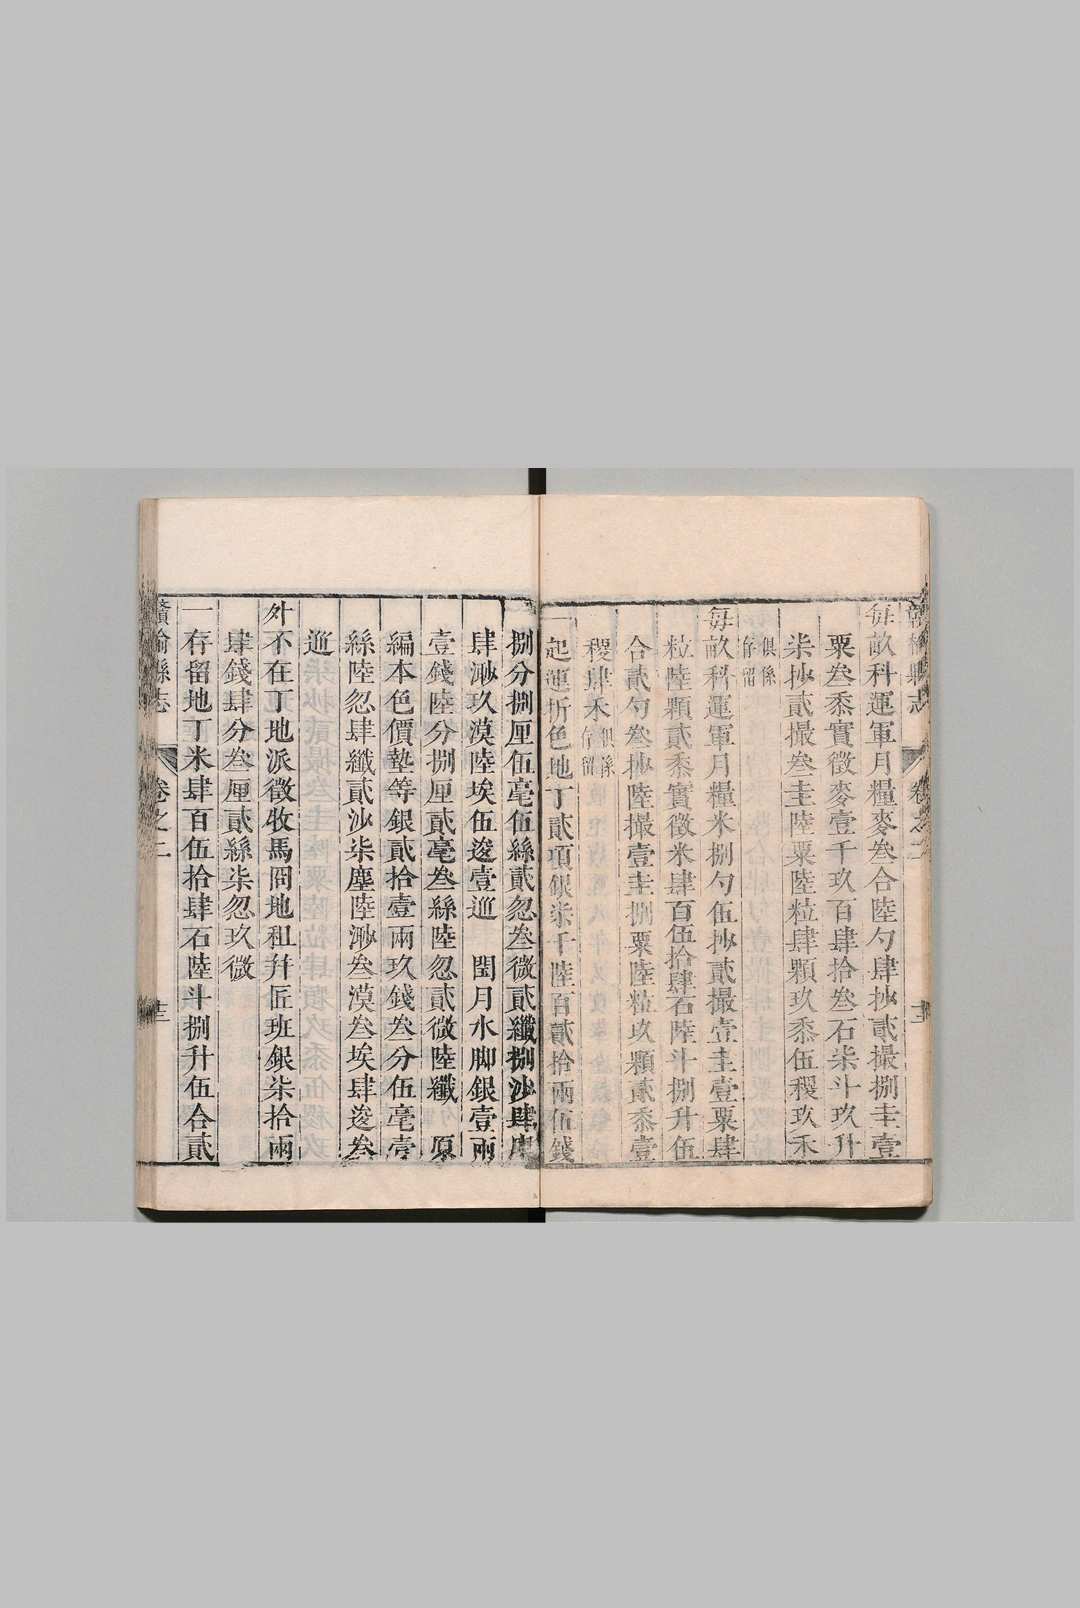 贛榆縣志
卷之二
十二
每畝科運軍月糧麥叁合陸勺肆抄貳撮捌圭壹
粟叁黍實徵麥壹千玖百肆拾叁石柒斗玖升
柒抄貳撮叁圭陸粟陸粒肆顆玖黍伍稷玖禾
俱係存留
每畝科運軍月糧米捌勺伍抄貳撮壹圭壹粟肆
粒陸顆貳黍實徵米肆百伍拾肆石陸斗捌升伍
合貳勺叁抄陸撮壹圭捌粟陸粒玖顆貳黍壹
稷肆禾俱係存留
一起運折色地丁貳項銀柒千陸百貳拾兩伍錢
捌分捌厘伍毫伍絲貳忽叁微貳纖捌沙肆塵
肆渺玖漠陸埃伍逡壹巡 閏月水脚銀壹兩
壹錢陸分捌厘貳毫叁絲陸忽貳微陸纖 原
編本色價墊等銀貳拾壹兩玖錢叁分伍毫壹
絲陸忽肆纖貳沙柒塵陸渺叁漠叁埃肆逡叁
巡
外不在丁地派徵牧馬岡地租并匠班銀柒拾兩
肆錢肆分叁厘貳絲柒忽玖微
一存留地丁米肆百伍拾肆石陸斗捌升伍合貳
贛榆縣志
卷之二
十三